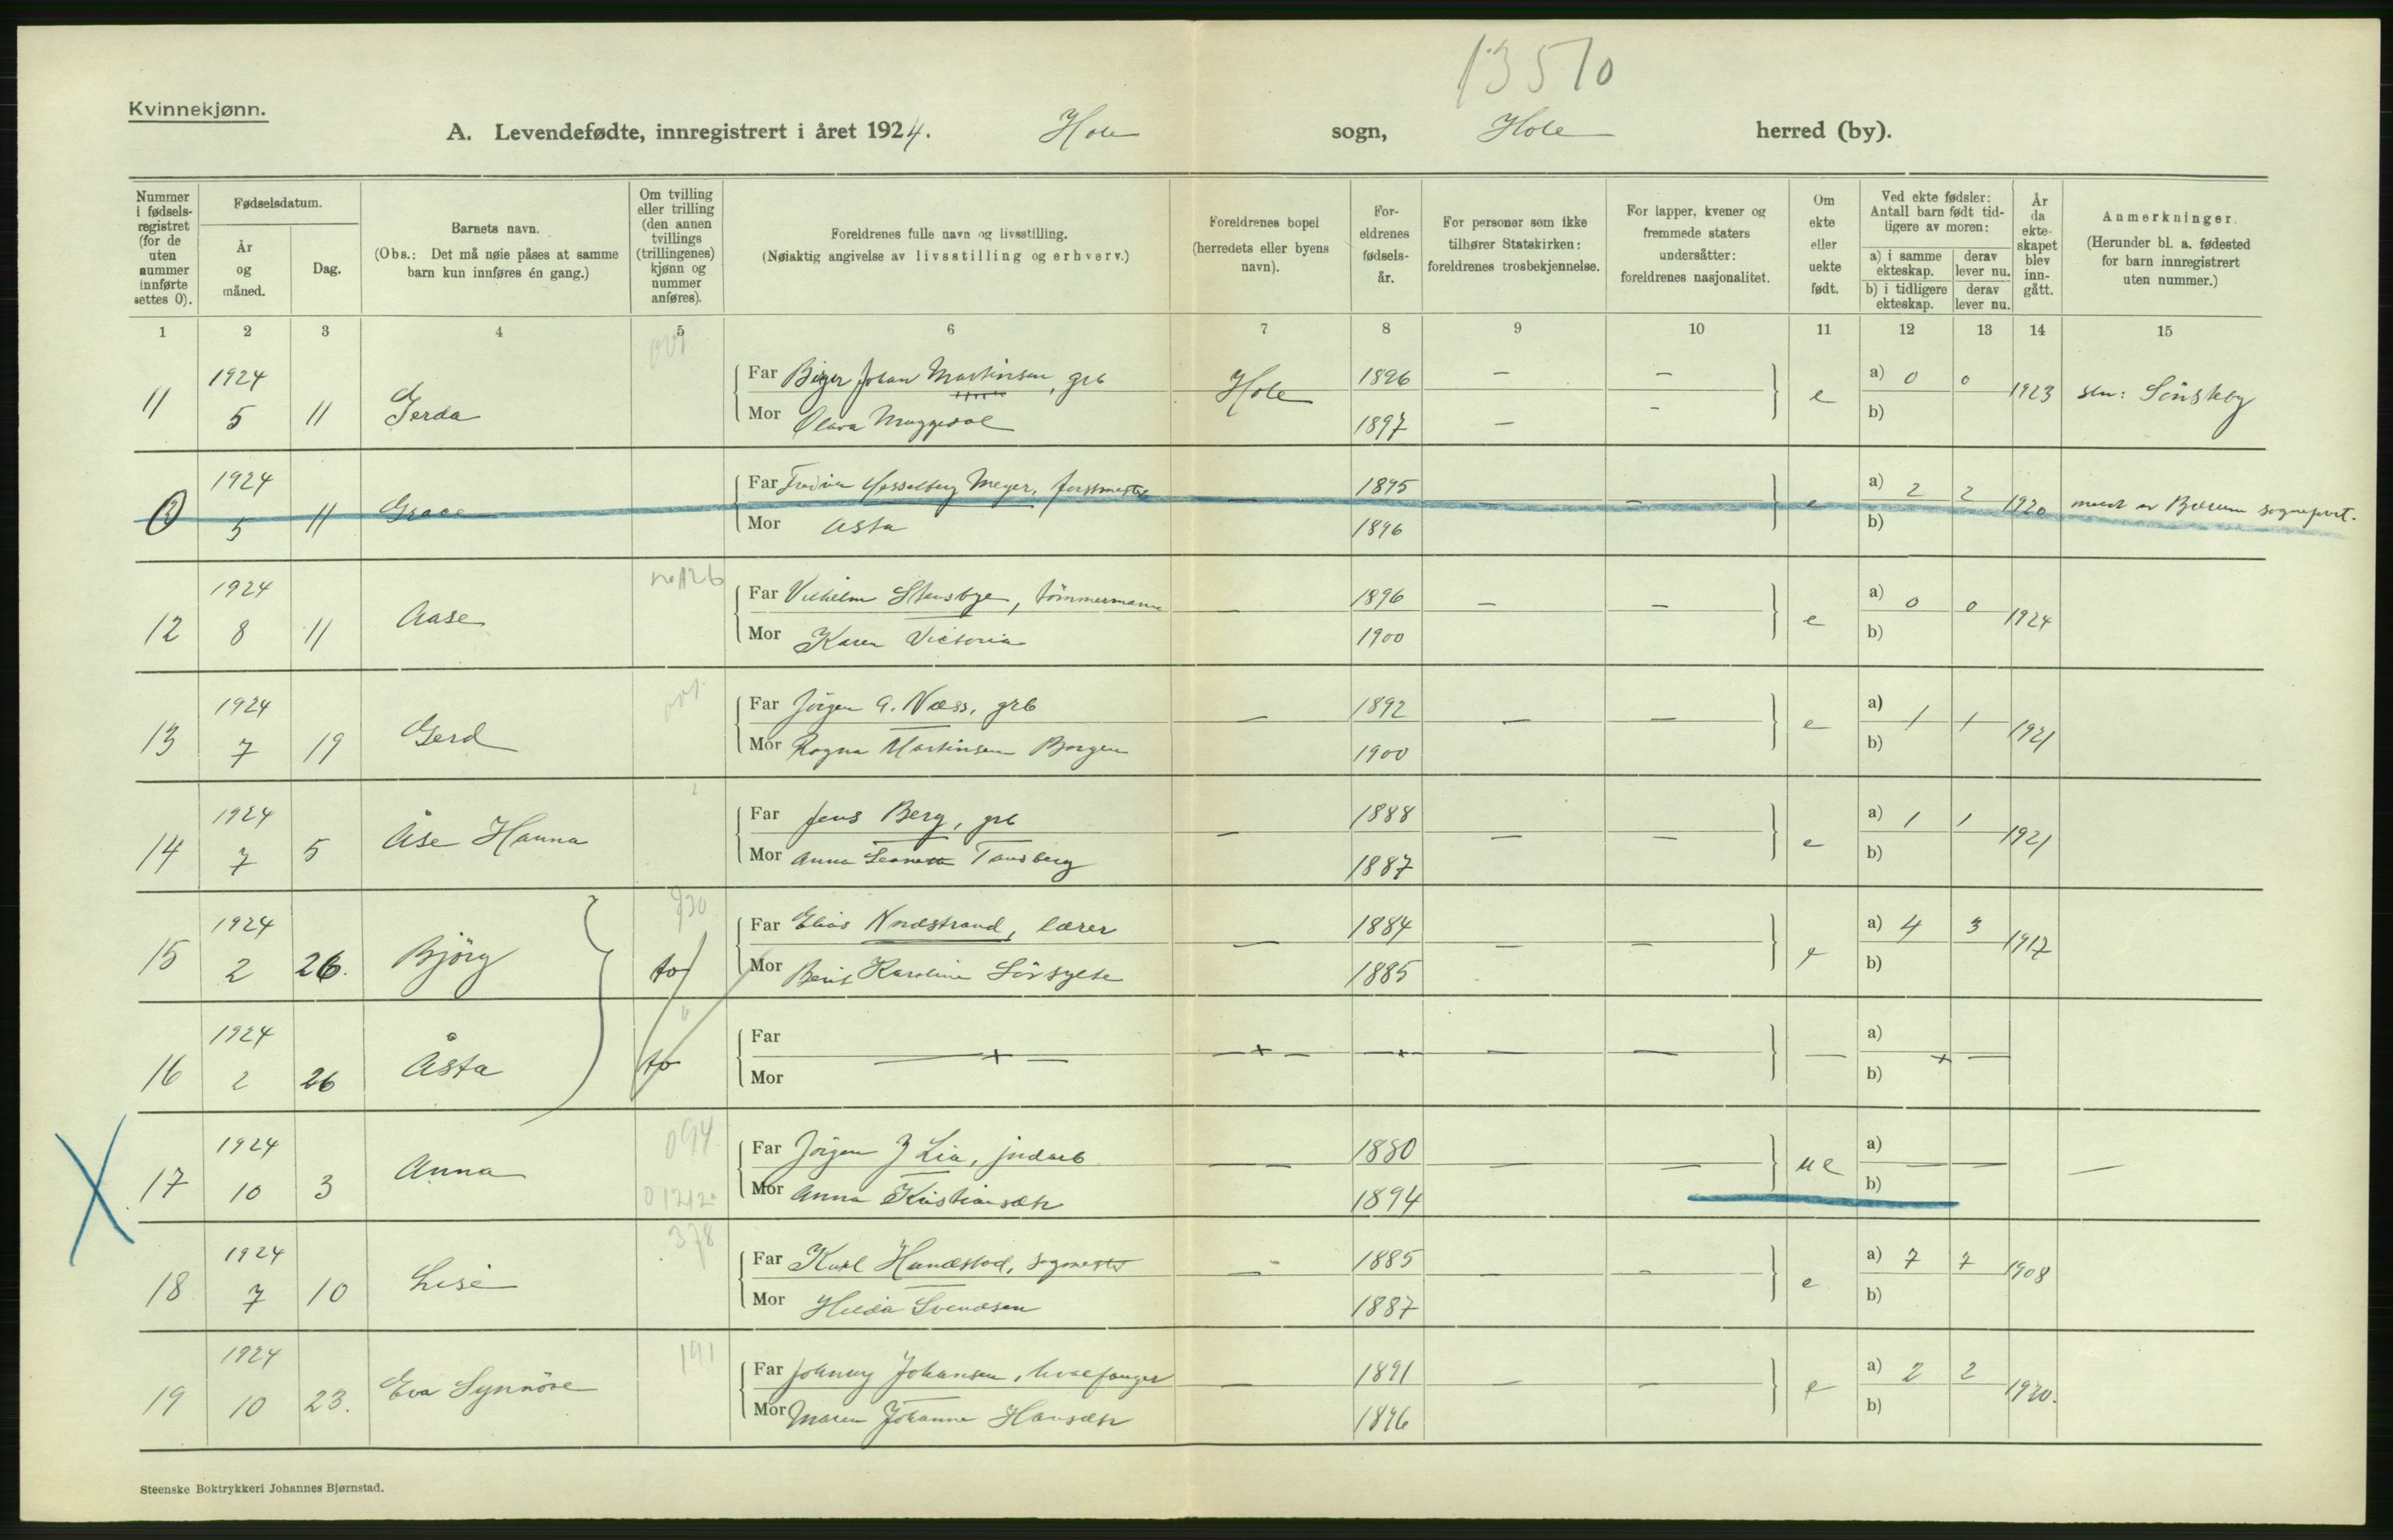 13510
Kvinnekjønn.
A. Levendefødte, innregistrert i året 1924. Hole sogn, Hole herred (by).
Nummer i fødselsregistret (for de uten nummer innførte settes 0).
Fødselsdatum.
År og måned.
Dag.
Barnets navn.
(Obs.: Det må nøie påses at samme barn kun innføres én gang.)
Om tvilling eller trilling (den annen tvillings (trillingenes) kjønn og nummer anføres).
Foreldrenes fulle navn og livsstilling.
(Nøiaktig angivelse av livsstilling og erhverv.)
Foreldrenes bopel (herredets eller byens navn).
Foreldrenes fødselsår.
For personer som ikke tilhører Statskirken: foreldrenes trosbekjennelse.
For lapper, kvener og fremmede staters undersåtter: foreldrenes nasjonalitet.
Om ekte eller uekte født.
Ved ekte fødsler: Antall barn født tidligere av moren:
a) i samme ekteskap. derav lever nu.
b) i tidligere ekteskap. derav lever nu.
År da ekteskapet blev inngått.
Anmerkninger.
(Herunder bl. a. fødested for barn innregistrert uten nummer.)
1 2 3 4 5 6 7 8 9 10 11 12 13 14 15
11 1924 5 11 Gerda Far Birger Johan Martinsen, grb Hole 1896 — — e a) 0 0 1923
Mor Olava Muggedal 1897 — - b)
1924 5 11 Grace Far Hesselberg Meyer, forstmester — 1895 — — e a) 2 2 1920
Mor Asta 1896 b)
12 1924 8 11 Aase Far Vilhelm Stensbye, tömmermann — 1896 — — e a) 0 0 1924
Mor Karen Victoria 1900 b)
13 1924 7 19 Gerd Far Jörgen A. Næss, grb — 1892 — — e a) 1 1 1921
Mor Ragna Martinsen Borgen 1900 b)
14 1924 7 5 Åse Hanna Far Jens Berg, grb — 1888 — — e a) 1 1 1921
Mor Anna Tandberg 1887 b)
15 1924 2 26. Björg to Far Elias Nordstrand, lærer — 1884 — — e a) 4 3 1917
Mor Berit Karoline Sörsylte 1885 b)
16 1924 2 26 Åsta to Far — + — — + — — + — — — — a)
Mor b) + —
17 1924 10 3 Anna 094 Far Jörgen J Lia, indarb — — 1880 — — ue a) — — —
Mor Anna Kristiansdtr 1894 b)
18 1924 7 10 Lise 378 Far Karl Hundstad, — 1885 — — e a) 7 7 1908
Mor Hilda Svendsen 1887 b)
19 1924 10 23. Eva Synnöve 191 Far Johnny Johansen, hvalfanger — 1891 — — e a) 2 2 1920.
Mor Maren Johanne Hansdtr 1896 b)
Steenske Boktrykkeri Johannes Bjørnstad.